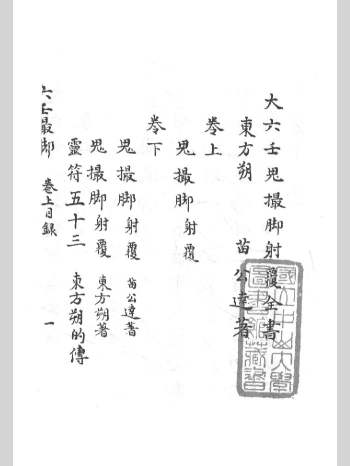 大六壬鬼撮脚射覆全書
東方朔 苗公達著
卷上
鬼撮脚射覆
卷下
鬼撮脚射覆 苗公達著
鬼撮脚射覆 東方朔著
靈符五十三 東方朔的傳
六壬最脚 卷上目錄 一
國立中山大學圖書館藏書